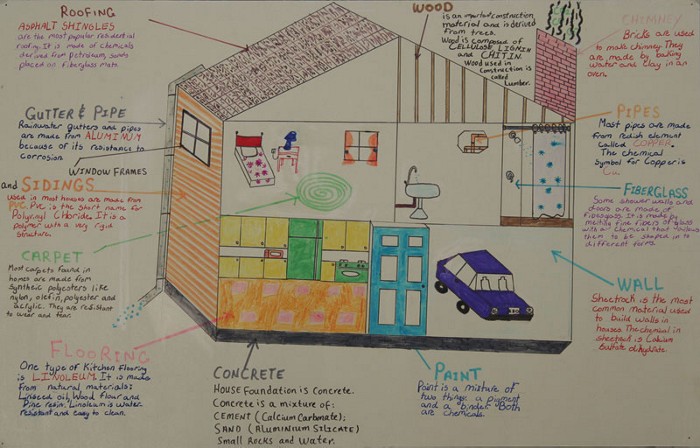 ROOFING
ASPHALT SHINGLES
are the most popular residential
roofing. It is made of chemicals
derived from petroleum, sands
placed on fiberglass mats
GUTTER & PIPE
Rainwater gutters and pipes
are made from ALUMINUM
because of its resistance to
corrosion
WINDOW FRAMES
and SIDINGS
used in most houses are made from
PVC. PVC is the short name for
Polyvinyl Chloride. It is a
polymer with a very rigid
structure.
CARPET
Most carpets found in
homes are made from
synthetic polyesters like
nylon, olefin, polyester and
acrylic. They are resistant
to wear and tear.
FLOORING
One type of Kitchen Flooring
is LINOLEUM. It is made
from natural materials:
Linseed oil, Wood flour and
Pine resin. Linoleum is water
resistant and easy to clean.
CONCRETE
HOUSE Foundation is Concrete.
Concrete is a mixture of:
CEMENT (Calcium Carbonate);
SAND (ALUMINIUM SILICATE)
Small Rocks and Water.
PAINT
Paint is a mixture of
two things: a pigment
and a binder. Both
are chemicals
WOOD
is an important construction
material and is derived
from trees.
Wood is composed of
CELLULOSE, LIGNIN
and CHITIN.
Wood used in
construction is
called
Lumber.
CHIMNEY
Bricks are used
to make chimney. They
are made by baking
water and clay in an
oven.
PIPES
Most pipes are made
from redish element
called COPPER.
The chemical
symbol for Copper is
Cu.
FIBERGLASS
Some shower walls and
doors are made of
fiberglass. It is made by
melting fine fibers of glass
with a chemical that allows
them to be shaped in to
different forms.
WALL
Sheetrock is the most
common material used
to build walls in
houses. The chemical in
sheetrock is Calcium
Sulfate dihydrate.